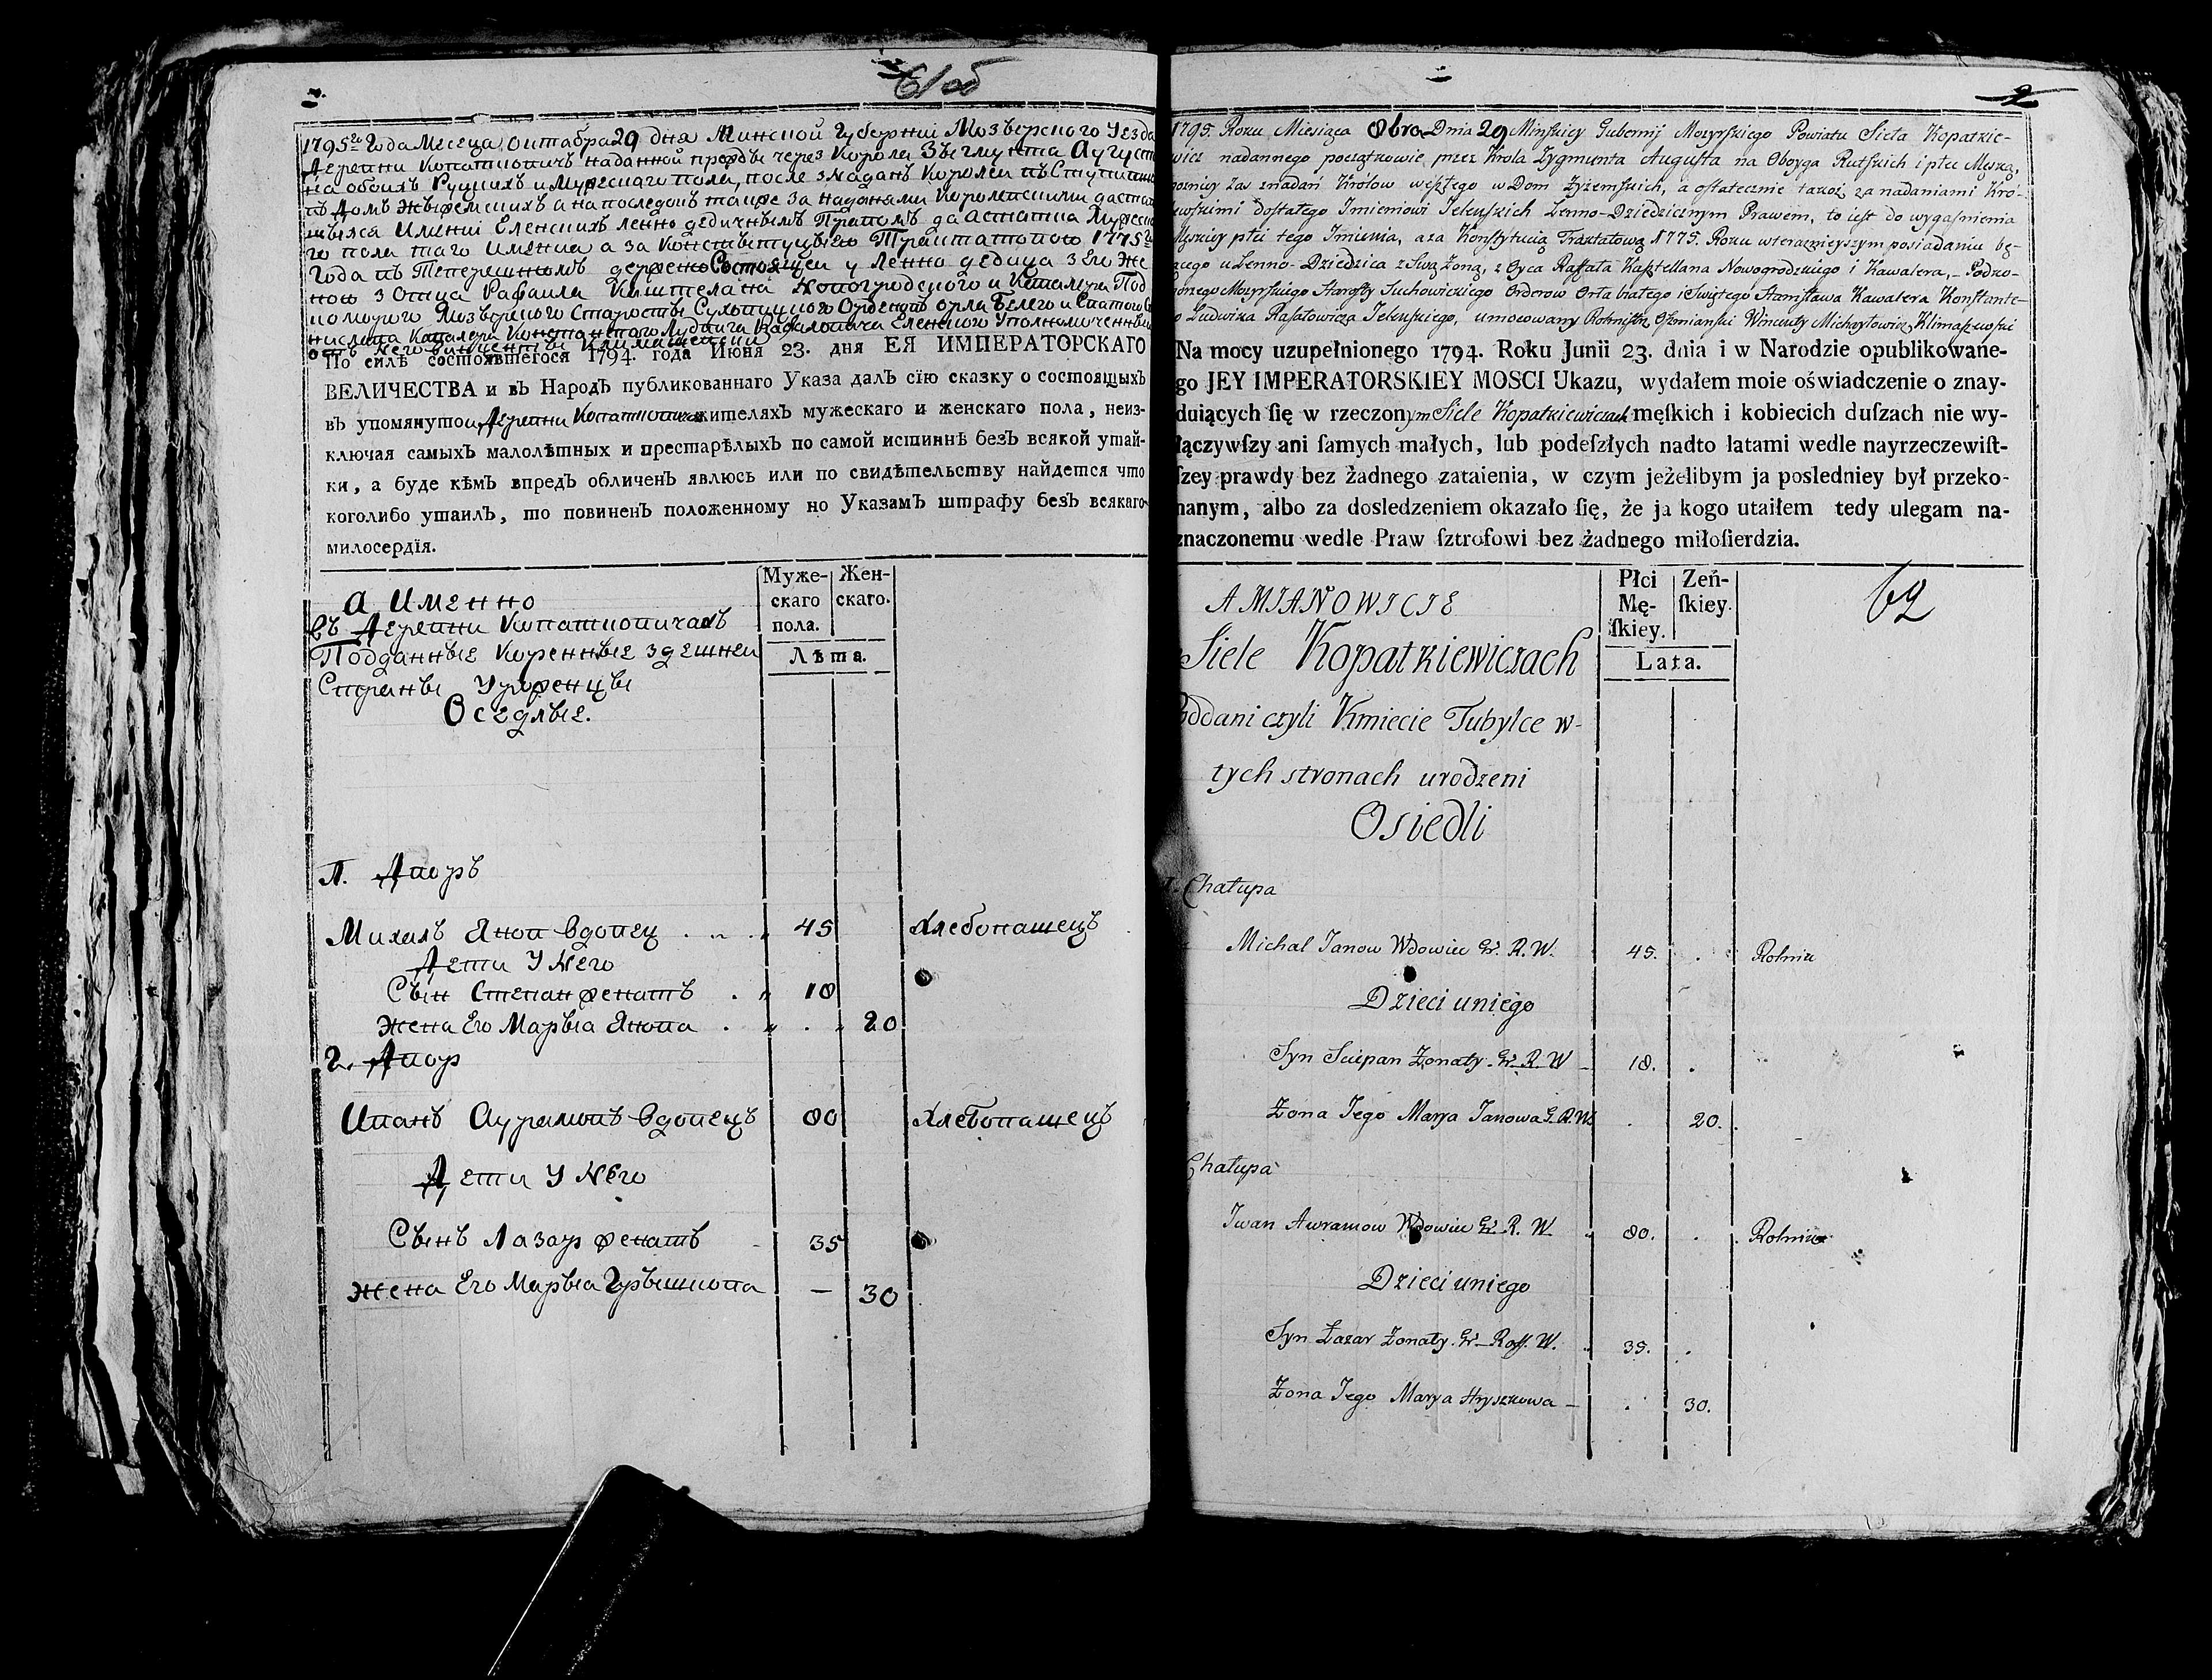 61об
1795го Года Месеца Октабра 29 дня Минской Губерніи Мозърского Уезда
Деревни Копаткович наданной прежде через Короля Зыгмунта Августа
на обоихъ Руцкихъ и Мужеского пола, после з Надань Королей въ
въ Домъ Жыжемскихъ а на последокъ также За Наданями Королевскими
Имений Еленскихъ ленно дедичнымъ Правомъ да
го пола таго Имениа а за Констытуцыею Трактатовою 1775го
Года въ Теперешномъ держено Состоящей у Ленно дедица З Его Же
ною З Отца Рафаила Каштеляна Новогродского и Кавалера Под
коморого Мозырского Старосты Суховицкого Орденов орла Белего и Святого
нислава Кавалера Константого Лудвига Рафаловича Еленского Уполномоченный
отъ Него Винцентый Климашевски
По силѣ состоявшегося 1794. года Июня 23. дня ЕЯ ИМПЕРАТОРСКАГО
ВЕЛИЧЕСТВА и въ Народъ публикованнаго Указа далъ сїю сказку о состоящыхъ
въ упомянутои Деревни Копатковичах жителяхъ мужескаго и женскаго пола, неиз-
ключая самыхъ малолѣтныхъ и престарѣлыхъ по самой истиннѣ безъ всякой утай-
ки, а буде кѣмъ впредъ обличенъ явлюсь или по свидѣтельству найдется что
коголибо утаилъ, то повиненъ положенному но Указамъ штрафу безъ всякаго
милосердїя.
а Именно
Въ Деревни Копатковичахъ
Подданные Коренные здешней
Стораны Уроженцы
Оседлые.
Муже-
скаго
пола.
Жен-
скаго.
Лѣта.
1. Дворъ
Михаль Янов Вдовец 45 Хлебопашецъ
Дети У Него
Сын Степан женатъ 18
Жена Его Марыа Янова 20
2. Двор
Иванъ Аурамовъ Вдовецъ 80 Хлебопашецъ
Дети У Него
Сынъ Лазар женатъ 35
Жена Его Марыа Грышкова — 30
2
1795. Roku Miesiąca 8bra Dnia 29 Minskiey Gubernij Mozyrskiego Powiatu Sieła Kopatkie-
wicz nadannego początkowie przez Krola Zygmunta Augusta na Oboyga Rutskich i płci Męską,
poźniey zas znadań Krolow weszłego w Dom Zyżemskich, a ostatecznie takoż za nadaniami Kró-
lewskimi dostałego Imieniowi Jelenskich Lenno-Dziedzicznym Prawem, to iest do wygaśnienia
Męskiey płci tego Imienia, a za Konstytucią Traktatową 1775. Roku wteraznieyszym posiadaniu bę-
dącego u Lenno-Dziedzica z Swą Zoną, z Oyca Raffała Kasztellana Nowogrodzkiego i Kawalera, Podko-
morzego Mozyrskiego Starosty Suchowickiego Orderow Orła białego i Swiętego Stanisława Kawalera Konstante-
go Ludwika Rafałowicza Jelenskiego, umocowany Rotmistrz Oszmianski Wincenty Michayłowicz Klimaszewski
Na mocy uzupełnionego 1794. Roku Junii 23. dnia i w Narodzie opublikowane-
go JEY IMPERATORSKIEY MOSCI Ukazu, wydałem moie oświadczenie o znay-
duiących ſię w rzeczonym Siele Kopatkiewiczach męſkich i kobiecich duſzach nie wy-
łączywſzy ani ſamych małych, lub podeſzłych nadto latami wedle nayrzeczewiſt-
ſzey prawdy bez żadnego zataienia, w czym jeżelibym ja posledniey był przeko-
nanym, albo za dosledzeniem okazało ſię, że ja kogo utaiłem tedy ulegam na-
znaczonemu wedle Praw ſztrofowi bez żadnego miłoſierdzia.
AMIANOWICIE
Siele Kopatkiewiczach
Poddani czyli Kmiecie Tubylce w-
tych stronach urodzeni
Osiedli
Płci
Mę-
ſkiey.
Żeń-
ſkiey.
Lata.
62
1. Chałupa
Michał Janow Wdowiec Gr. R. W. 45. Rolnik
Dzieci uniego
Syn Sciepan Żonaty Gr. R. W 18.
Żona Jego Marya Janowa G. R. W. 20.
Chałupa
Iwan Awramow Wdowiec Gr. R. W. 80. Rolnik
Dzieci uniego
Syn Łazar Żonaty. Gr. Ross. W. 35.
Żona Jego Marya Hryszkowa 30.